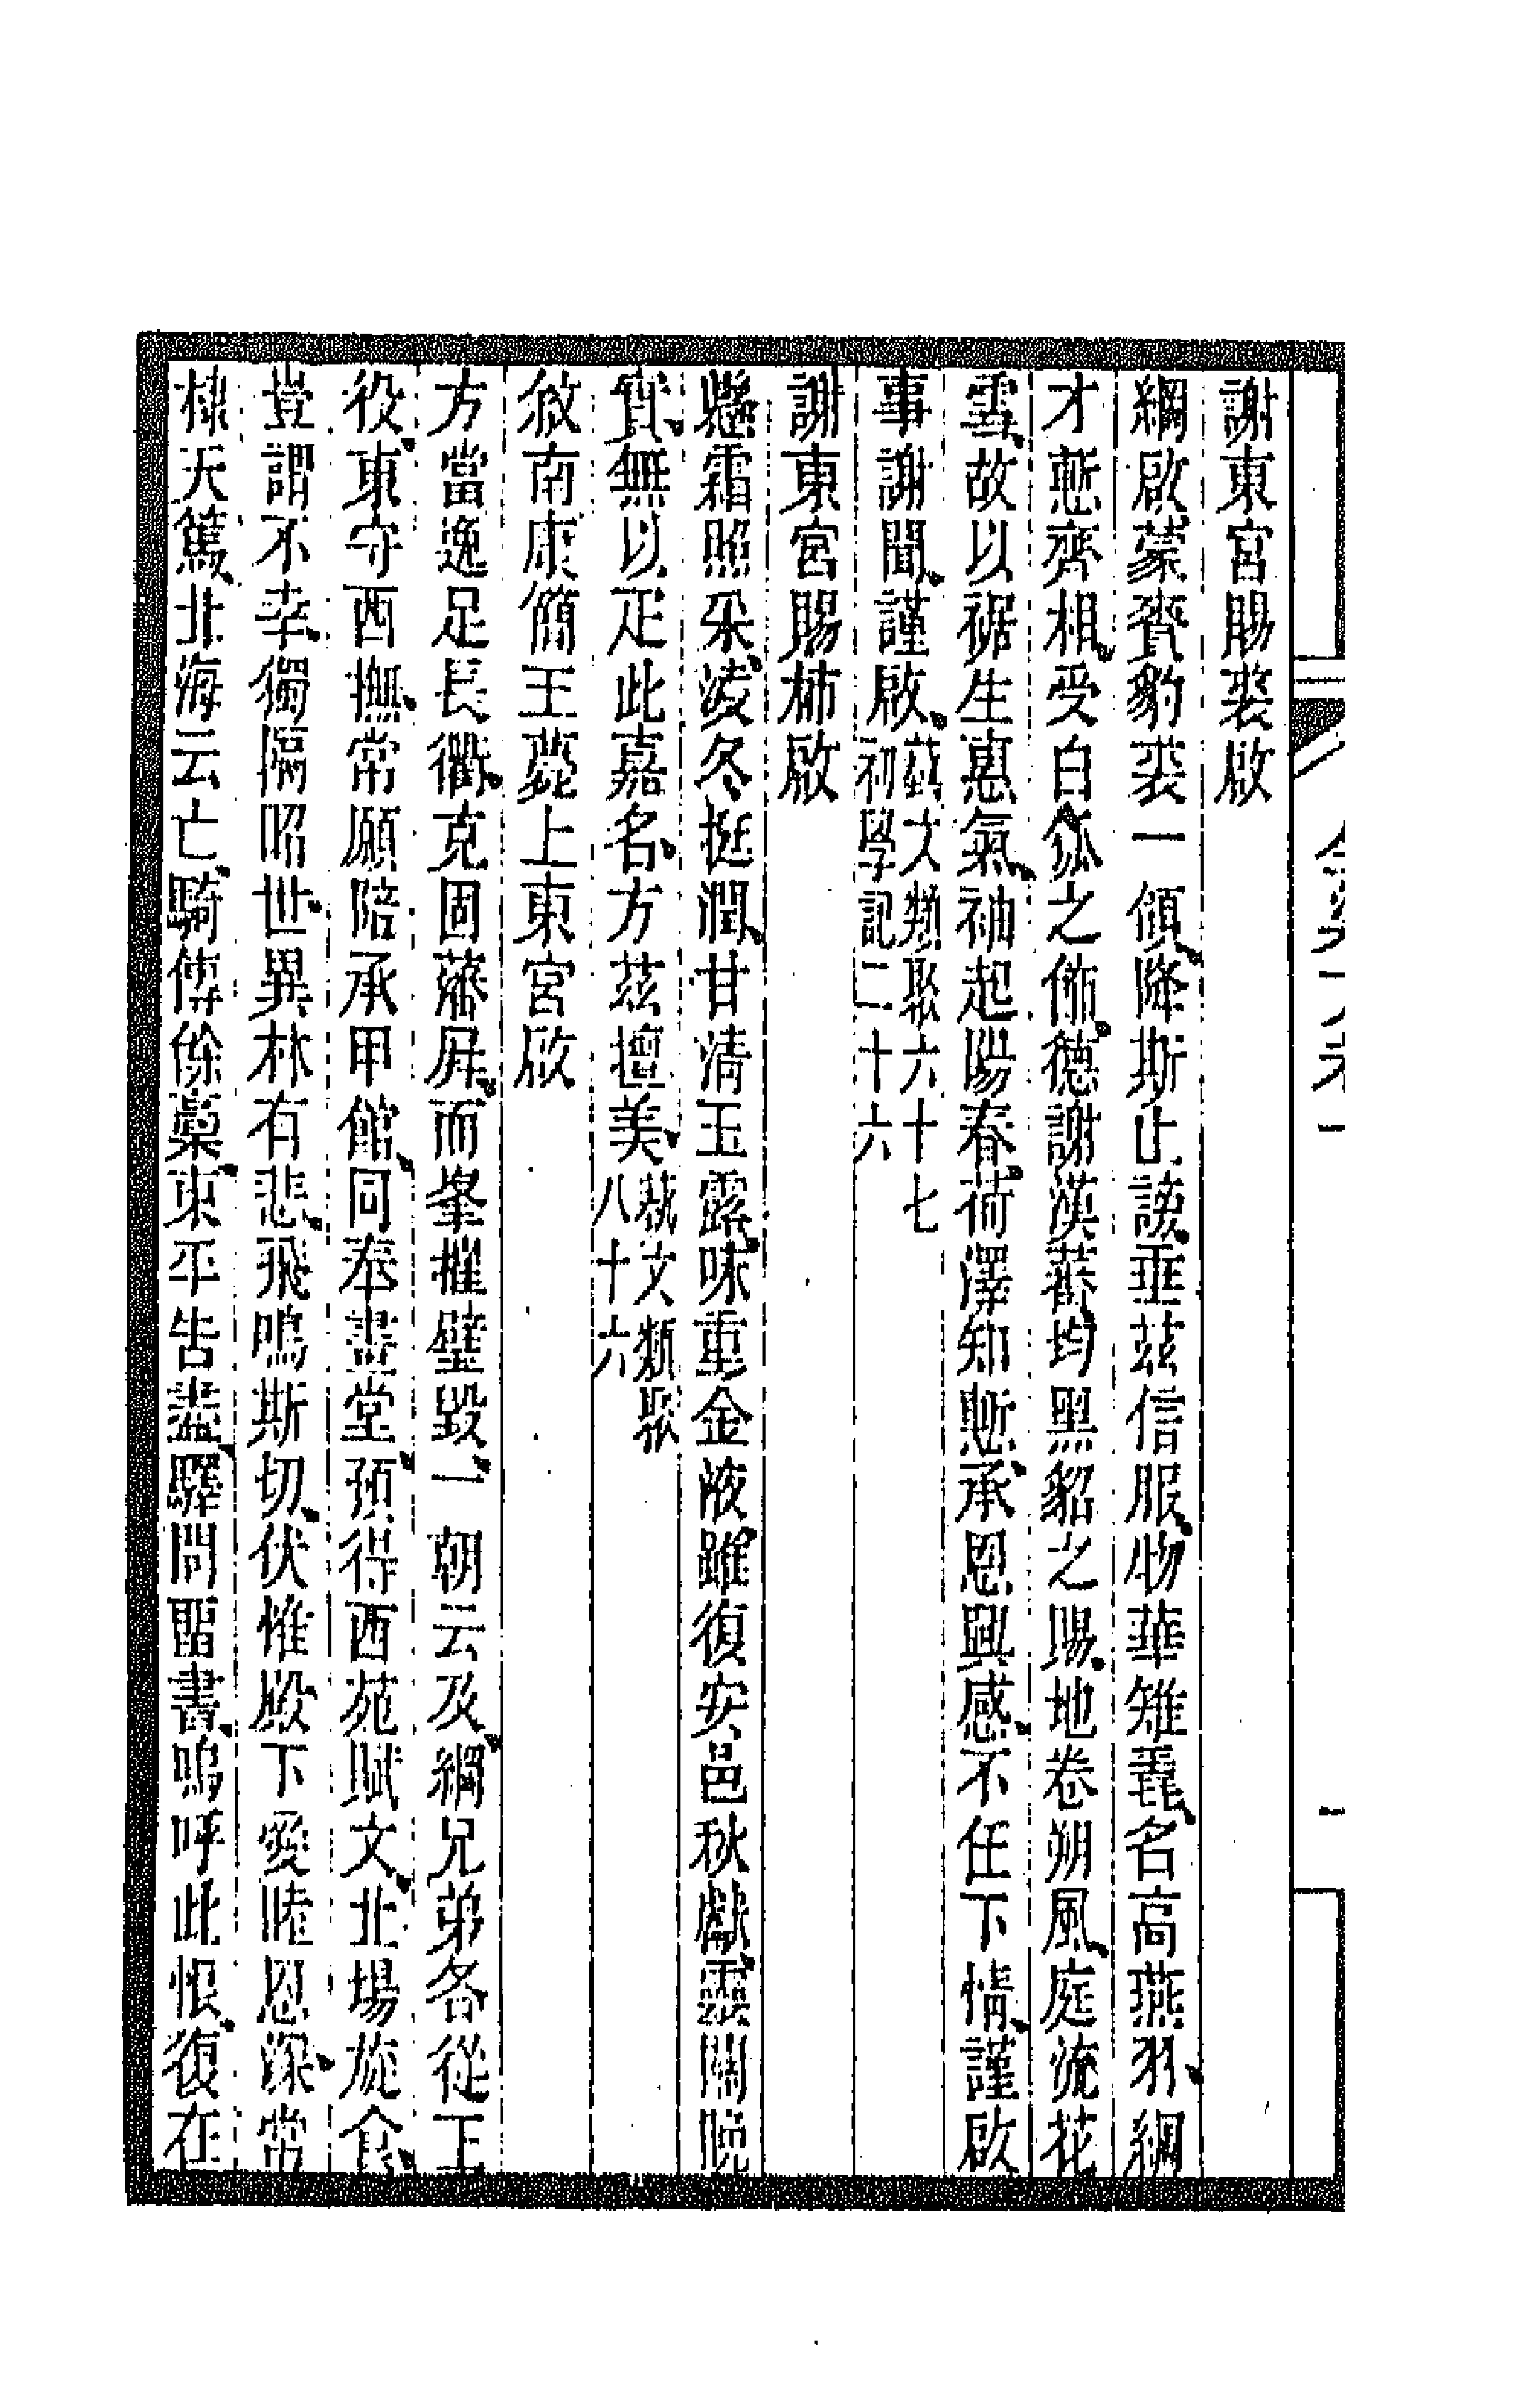 謝東宮賜裘啟
綱啟蒙賚豹裘一傾降斯止謗垂茲信服物華雉毳名高燕羽綱
才慙齊相受白狐之飾德謝漢蕃均黑貂之賜地卷朔風庭流花
雪故以裾生惠氣袖起陽春荷澤知慙承恩興感不任下情謹啟
事謝聞謹啟藝文類聚六十七
初學記二十六
謝東宮賜柿啟
懸霜照采凌冬挺潤甘清玉露味重金液雖復安邑秋獻靈關晚
實無以疋此嘉名方茲擅美藝文類聚
八十六
敘南康簡王薨上東宮啟
方當逸足長衢克固藩屏而峯摧璧毀一朝云及綱兄弟各從王
役東守西撫常願陪承甲館同奉畫堂預得西苑賦文北場旋食
豈謂不幸獨隔昭世異林有悲飛鳴斯切伏惟殿下愛睦恩深常
棣天篤北海云亡騎傳餘藁東平告盡驛問留書嗚呼此恨復在